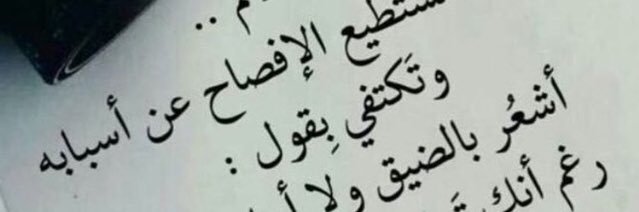 الإفصاح عن أسبابه
وتَكتفي بِقول :
أشعُر بالضيق ولا
رغم أنك